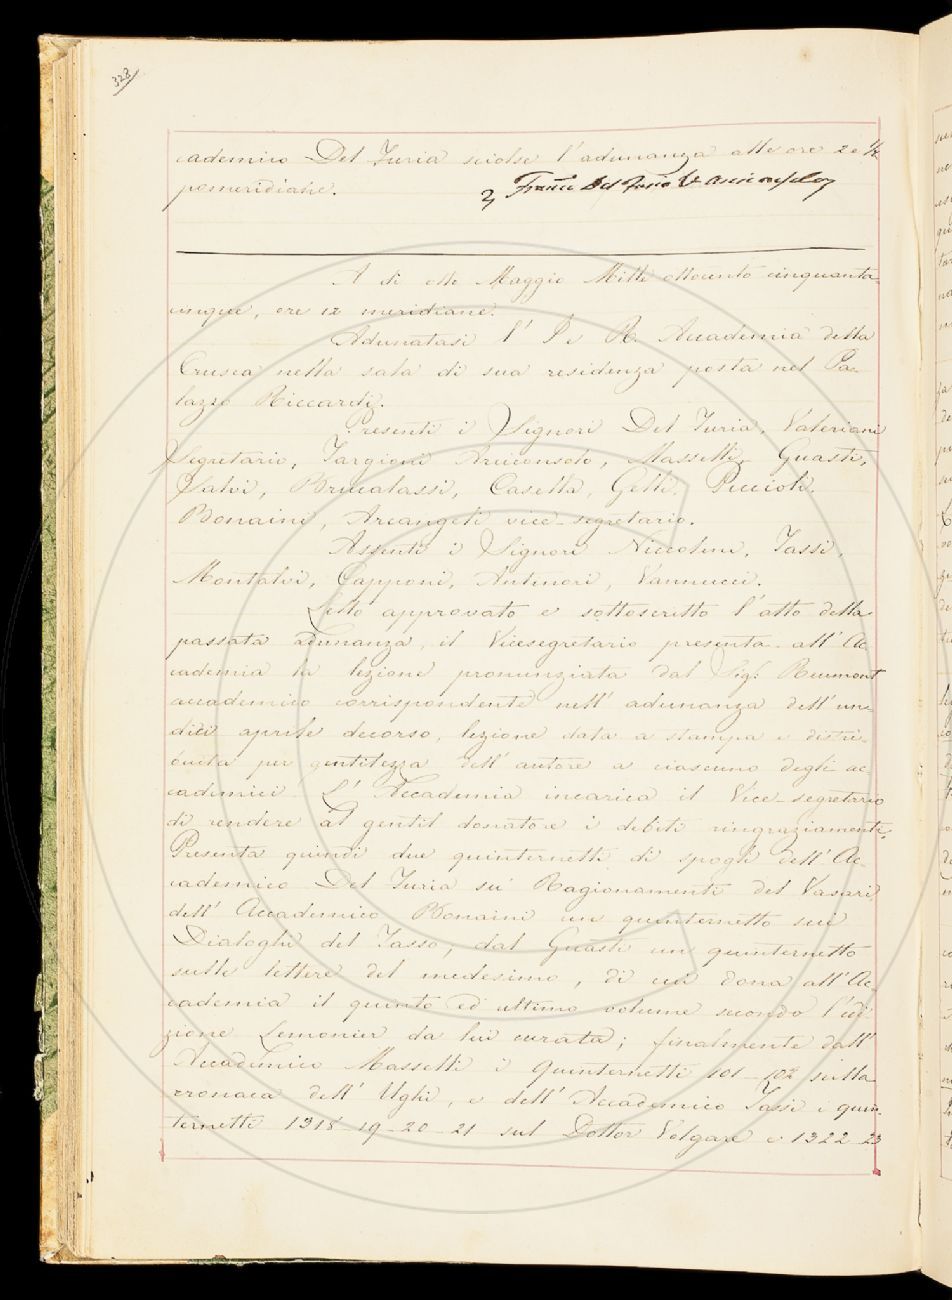 323
cademico Del Furia sciolse l'adunanza alle ore 2 e 1/2
pomeridiane.
Franco Del Furia
A dì otto Maggio Mille ottocento cinquanta-
cinque, ore 12 meridiane.
Adunatasi l' I. e R. Accademia della
Crusca nella sala di sua residenza posta nel Pa-
lazzo Riccardi.
Presenti i Signori Del Furia, Valeriani
Segretario, Targioni Arciconsolo, Masselli, Guasti,
Salvi, Brucalassi, Casella, Gelli, Puccioti.
Bonaini, Arcangeli vice-segretario.
Assenti i Signori Niccolini, Tassi,
Montalvi, Capponi, Antinori, Vannucci.
Letto approvato e sottoscritto l'atto della
passata adunanza, il Vicesegretario presenta all'Ac-
cademia la lezione pronunziata dal Sig: Reumont
accademico corrispondente nell' adunanza dell'un-
dici aprile decorso, lezione data a stampa e distri-
buita per gentilezza dell' autore a ciascuno degli ac-
cademici. L' Accademia incarica il Vice-segretario
di rendere al gentil donatore i debiti ringraziamenti.
Presenta quindi due quinternetti di spogli dell'Ac-
cademico Del Furia sui Ragionamenti del Vasari,
dell' Accademico Bonaini un quinternetto sui
Dialoghi del Tasso, dal Guasti un quinternetto
sulle lettere del medesimo, di cui dona all'Ac-
cademia il quinto ed ultimo volume secondo l'edi-
zione Lemonier da lui curata; finalmente dall'
Accademico Masselli i quinternetti 101-102 sulla
cronaca dell' Ughi, e dell' Accademico Tassi i quin-
ternetti 1318-19-20-21 sul Dottor Volgare e 1322-23